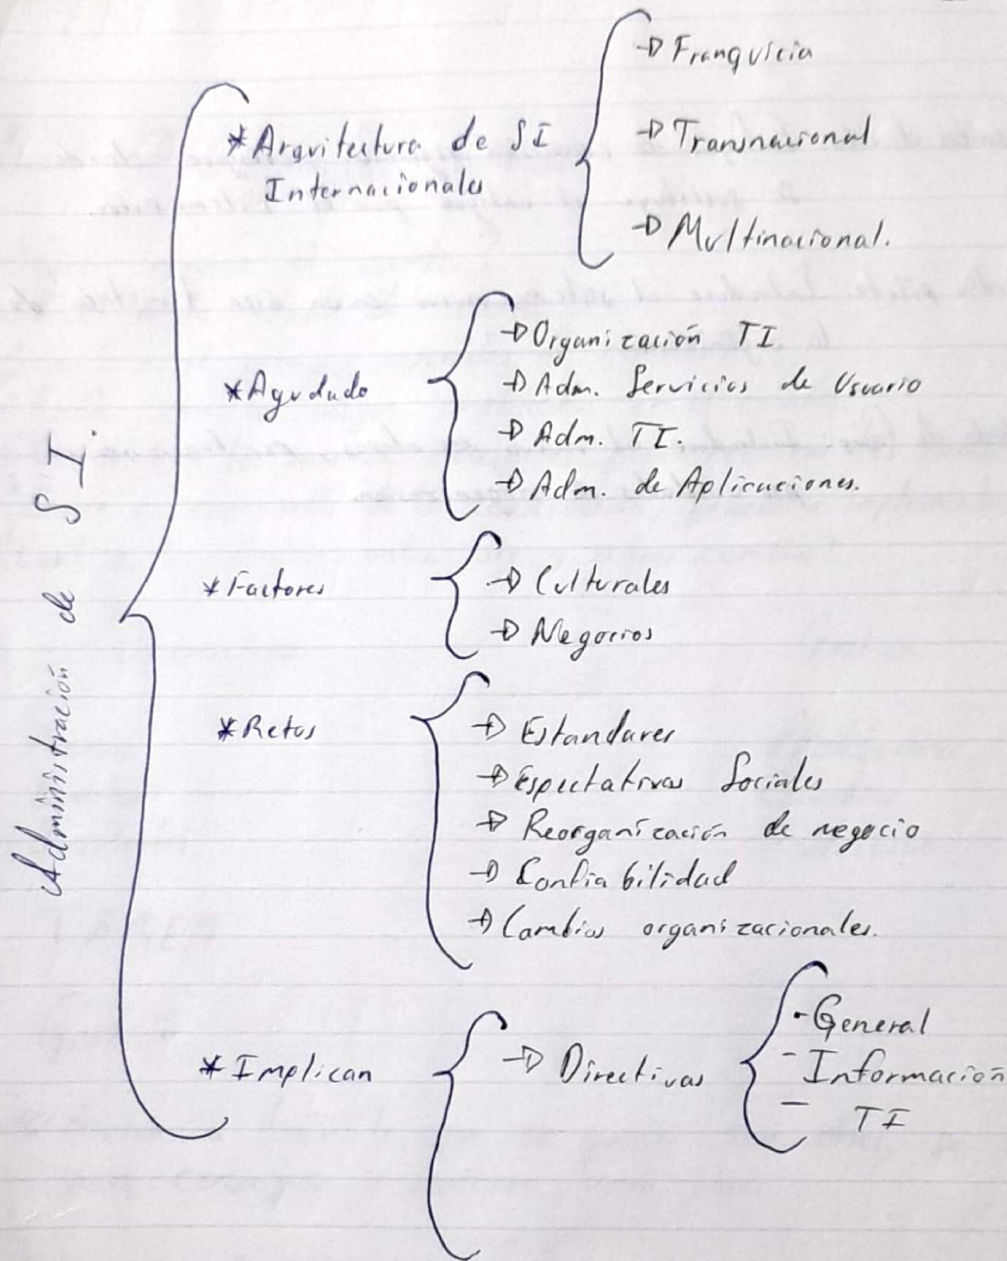 Administración de SI.
*Arquitectura de SI
Internacionales
→ Franquicia
→ Transnacional
→ Multinacional.
*Agududo
→ Organización TI
→ Adm. Servicios de Usuario
→ Adm. TI.
→ Adm. de Aplicaciones.
*Factores
→ Culturales
→ Negocios
*Retos
→ Estandares
→ Espectativas Sociales
→ Reorganización de negocio
→ Confiabilidad
→ Cambios organizacionales.
*Implican
→ Directivas
- General
- Información
- TI